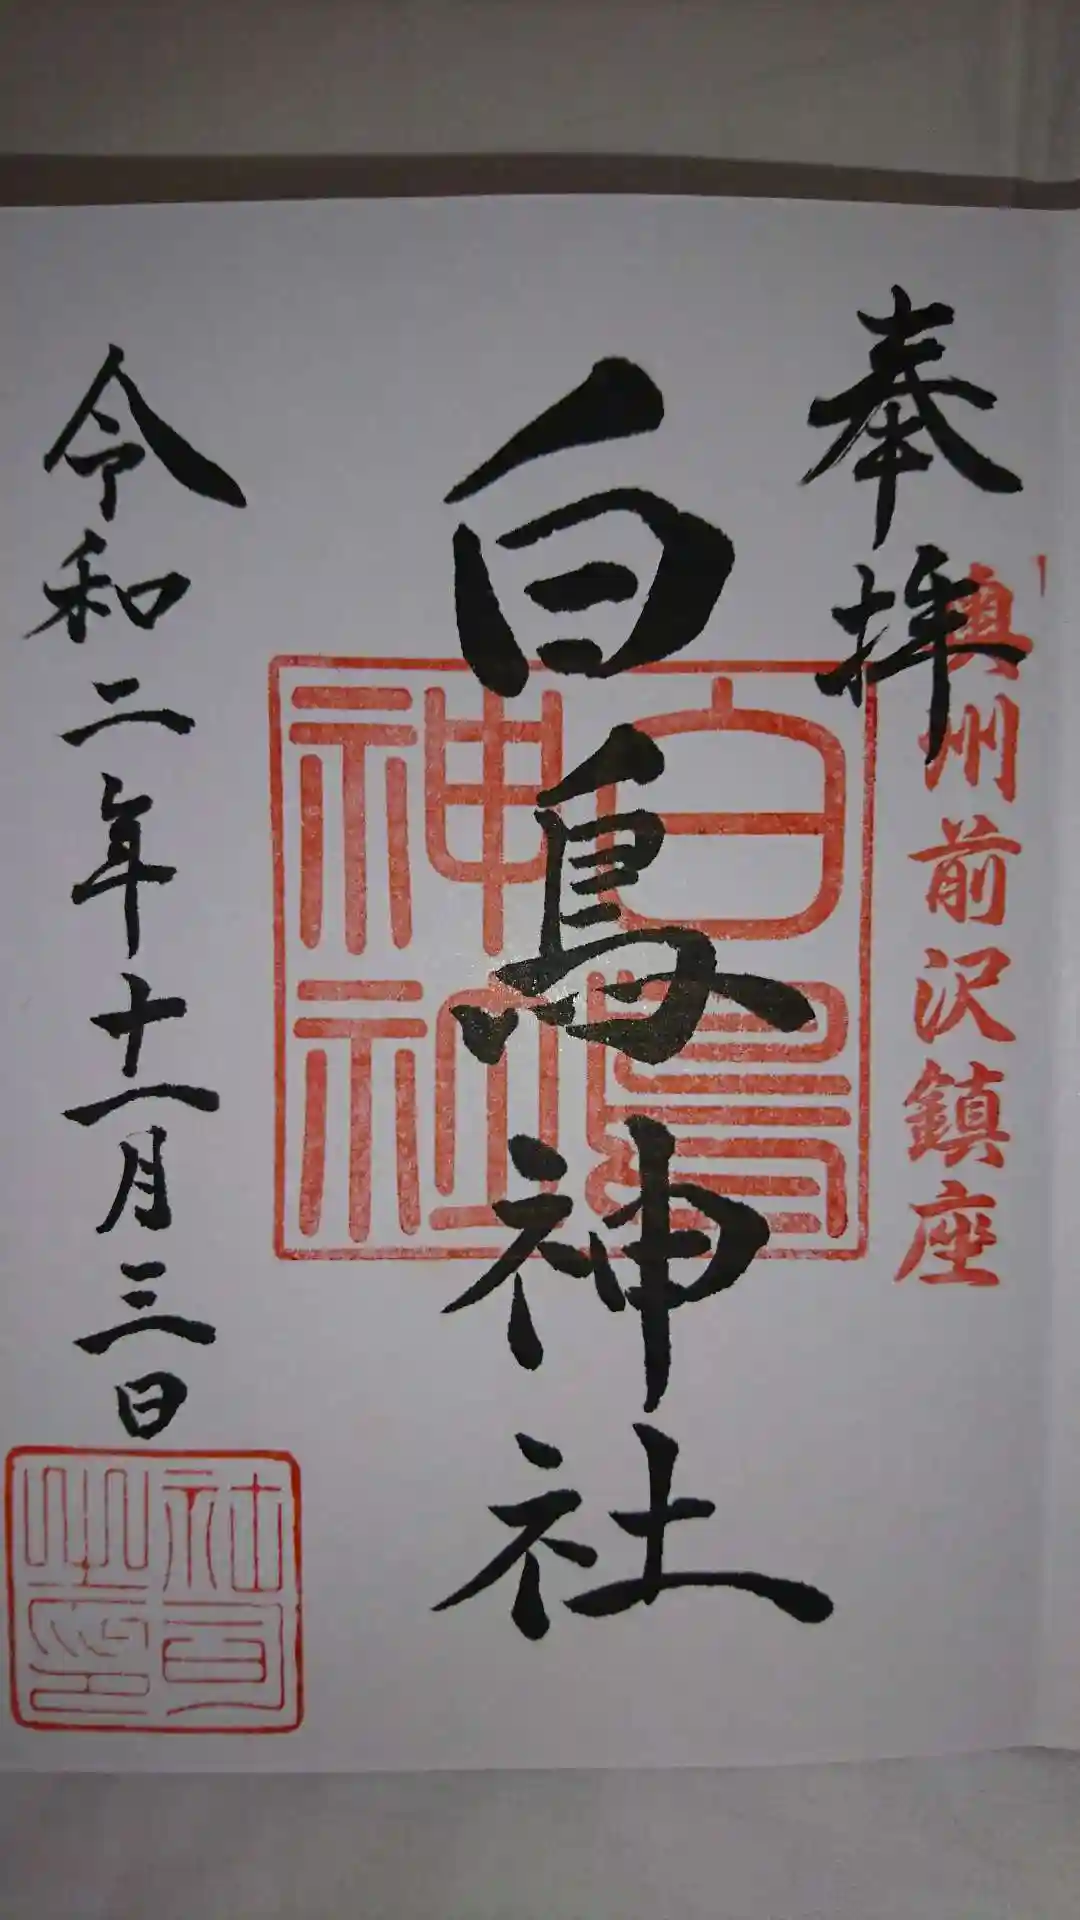 奉拝
奥州前沢鎮座
白鳥神社
白鳥
神社
令和二年十一月三日
社司
之印